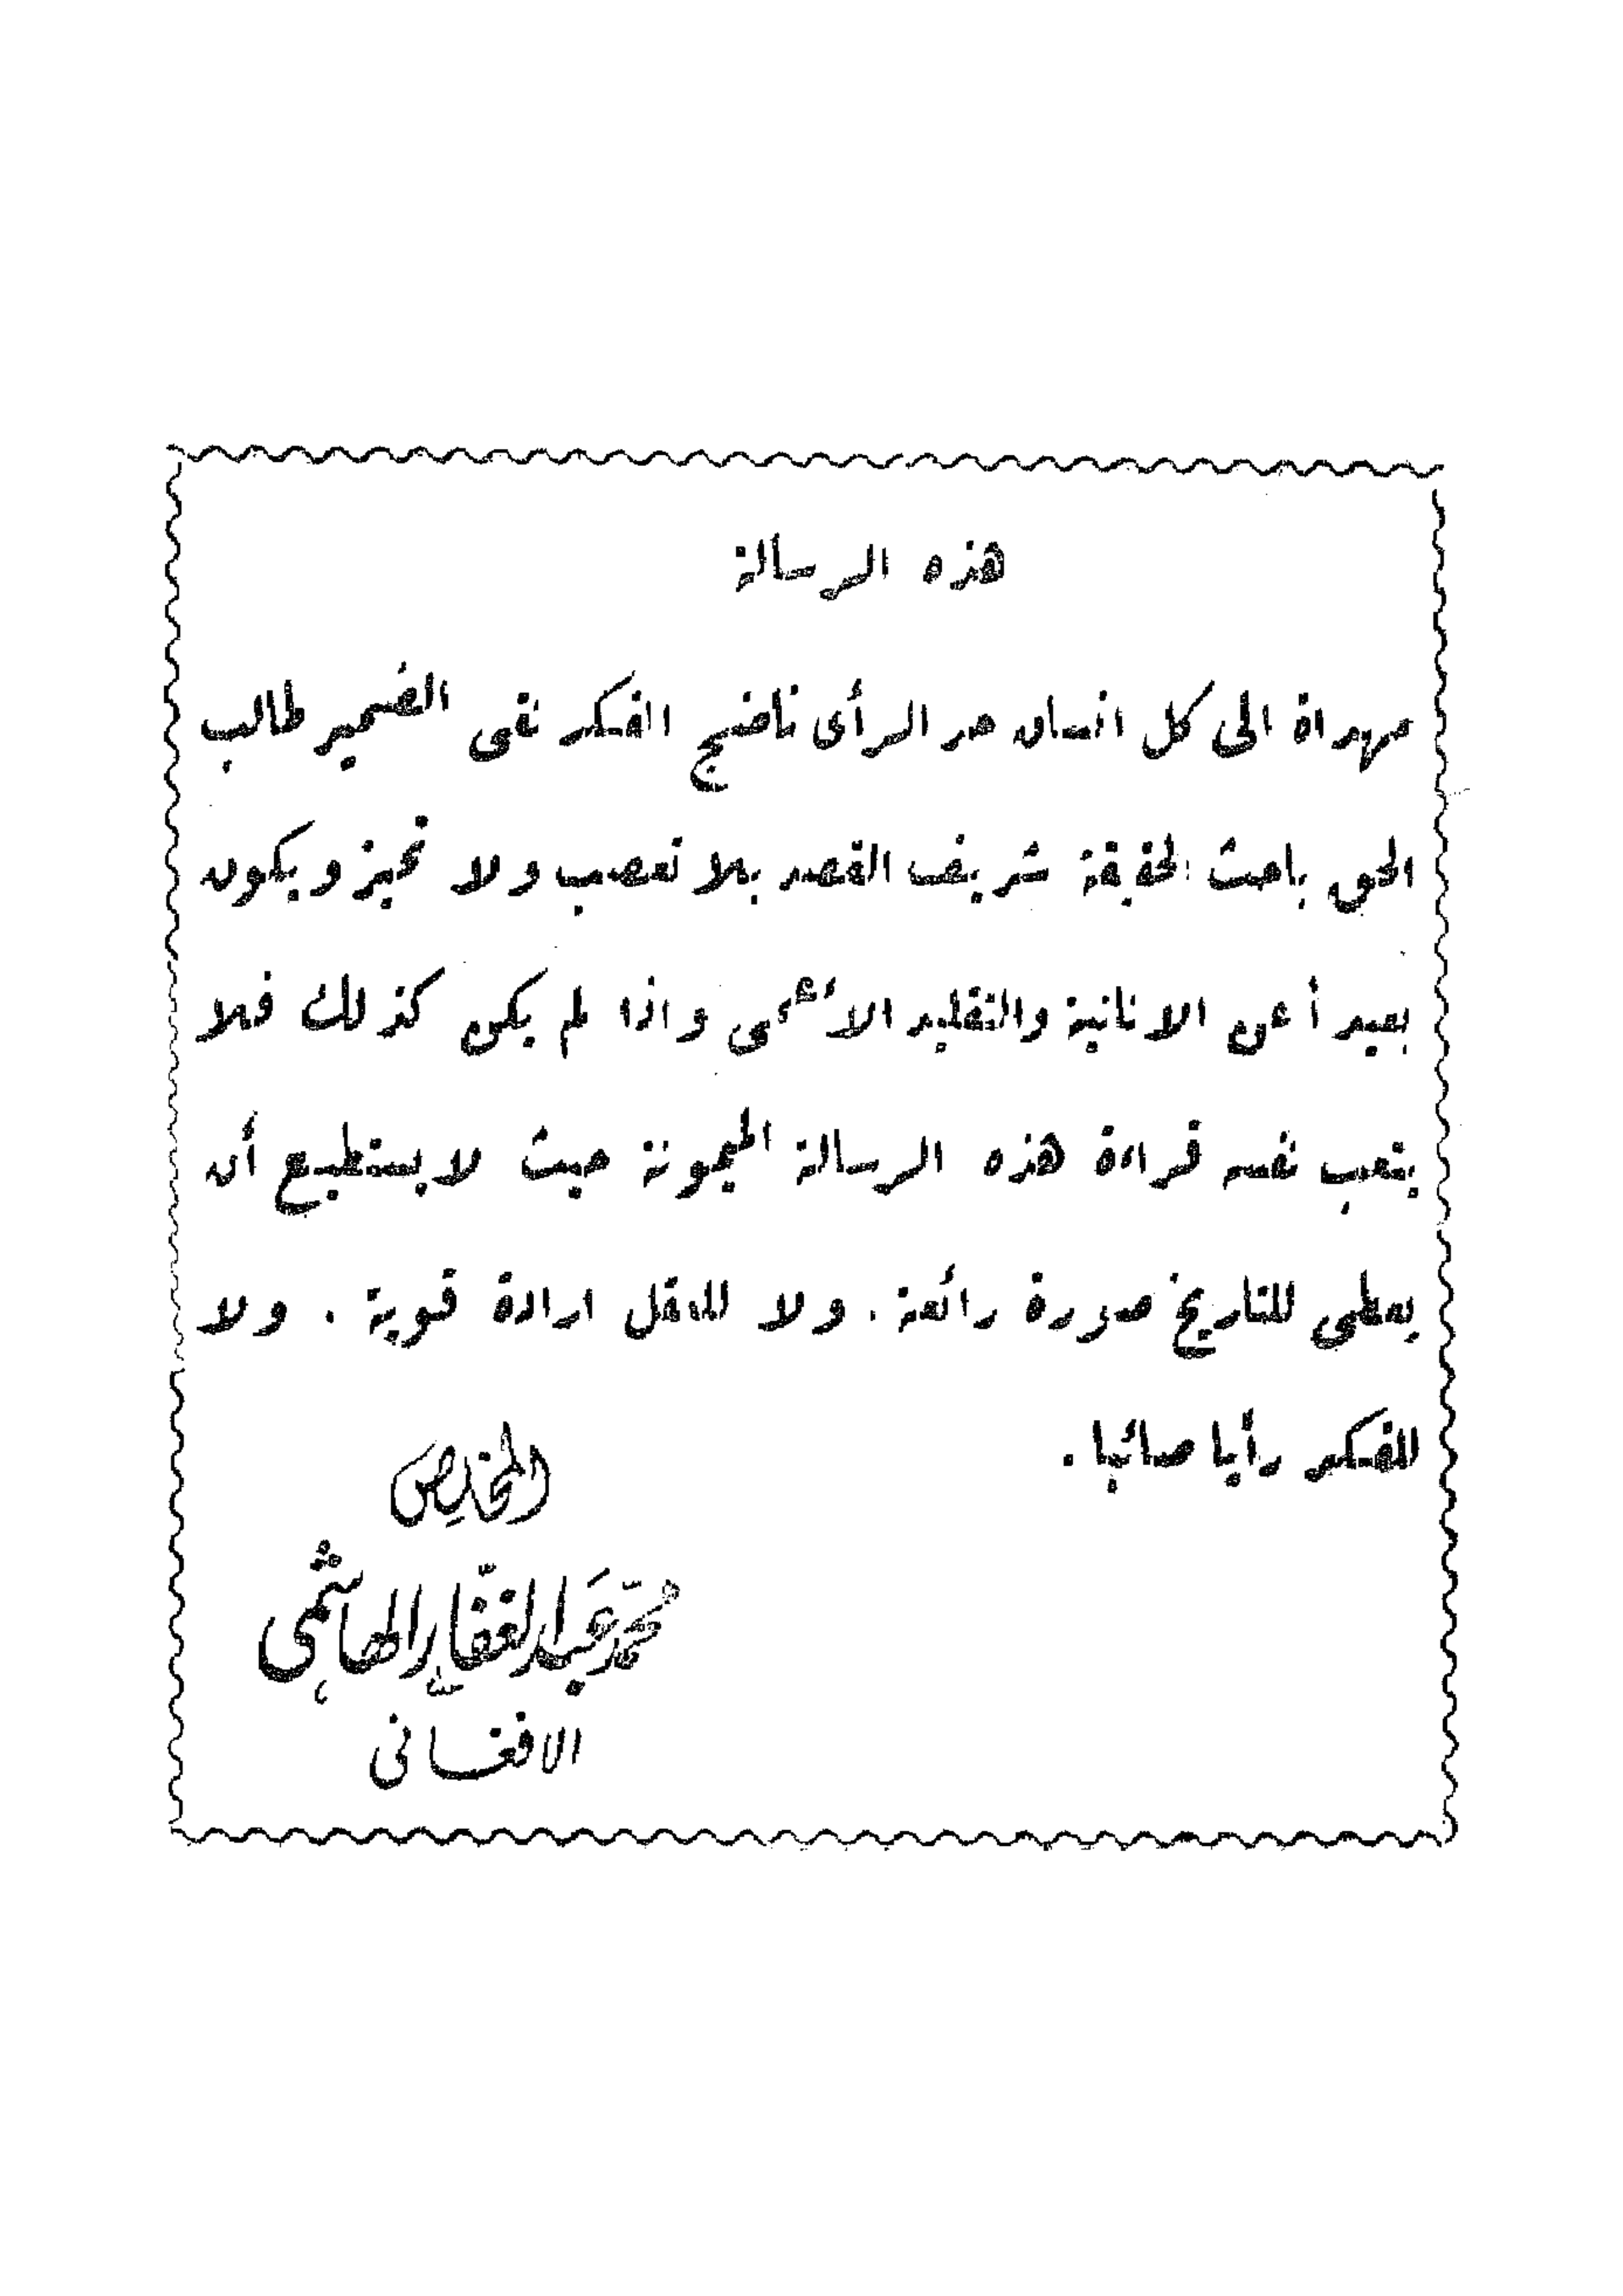 هذه الرسالة
مهداة الى كل انسان حر الرأى ناضج الفكر نقى الضمير طالب
الحق باحث الحقيقة شريف القصد بلا تعصب ولا تحيز ويكون
بعيدأ عن الانانية والتقليد الأعمى واذا لم يكن كذلك فلا
يتعب نفسه قراءة هذه الرسالة الميمونة حيث لا يستطيع أن
يعطى للتاريخ صورة رائعة . ولا للعقل ارادة قوية . ولا
للفكر رأيا صائبا .
المخلص
محمّد عَبدالغفّار الهاشمى
الافغانى